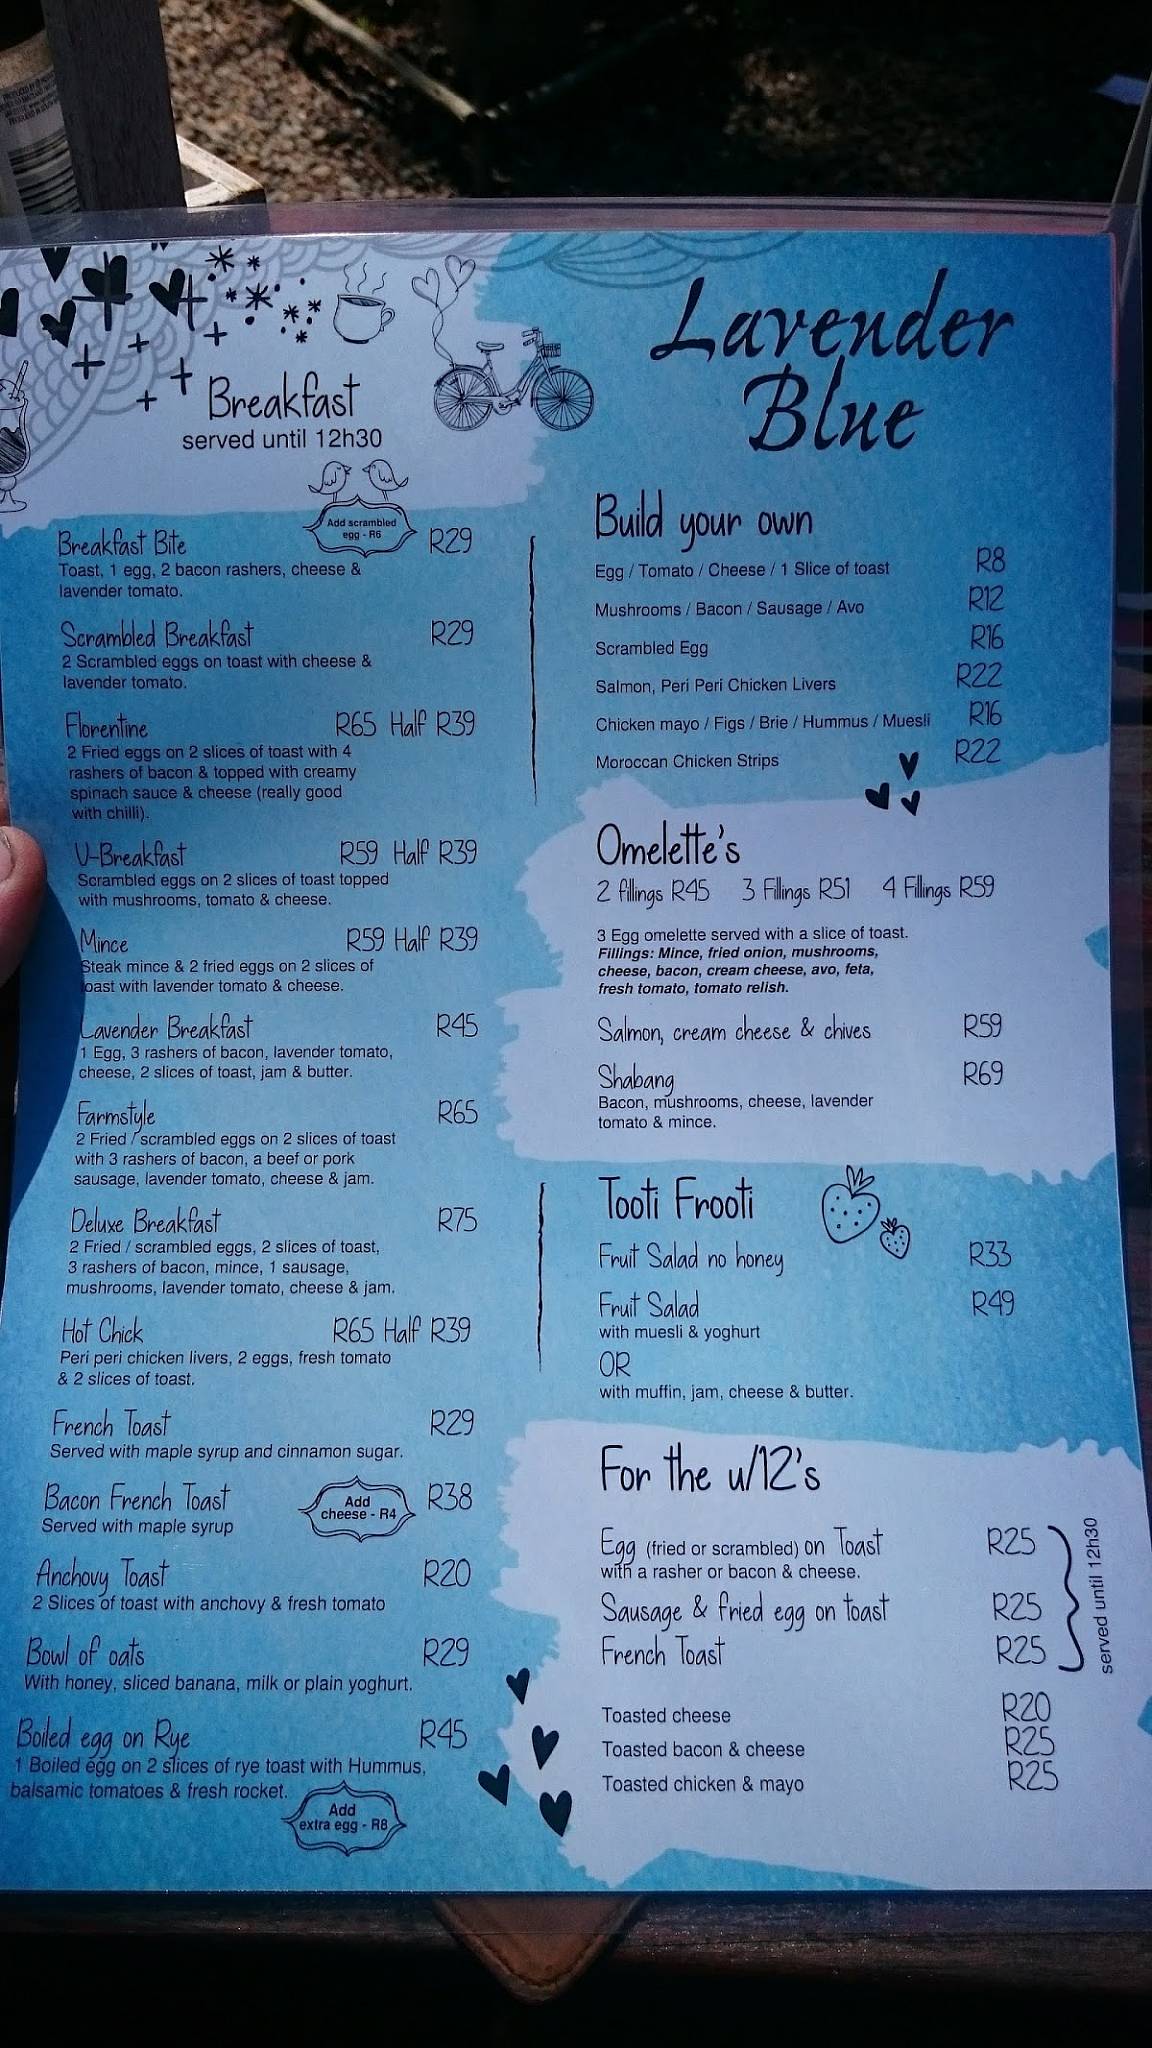 Breakfast
served until 12h30
Add scrambled
egg - R6
Breakfast Bite R29
Toast, 1 egg, 2 bacon rashers, cheese &
lavender tomato.
Scrambled Breakfast R29
2 Scrambled eggs on toast with cheese &
lavender tomato.
Florentine R65 Half R39
2 Fried eggs on 2 slices of toast with 4
rashers of bacon & topped with creamy
spinach sauce & cheese (really good
with chilli).
V-Breakfast R59 Half R39
Scrambled eggs on 2 slices of toast topped
with mushrooms, tomato & cheese.
Mince R59 Half R39
Steak mince & 2 fried eggs on 2 slices of
toast with lavender tomato & cheese.
Lavender Breakfast R45
1 Egg, 3 rashers of bacon, lavender tomato,
cheese, 2 slices of toast, jam & butter.
Farmstyle R65
2 Fried / scrambled eggs on 2 slices of toast
with 3 rashers of bacon, a beef or pork
sausage, lavender tomato, cheese & jam.
Deluxe Breakfast R75
2 Fried / scrambled eggs, 2 slices of toast,
3 rashers of bacon, mince, 1 sausage,
mushrooms, lavender tomato, cheese & jam.
Hot Chick R65 Half R39
Peri peri chicken livers, 2 eggs, fresh tomato
& 2 slices of toast.
French Toast R29
Served with maple syrup and cinnamon sugar.
Bacon French Toast R38
Served with maple syrup
Add
cheese - R4
Anchovy Toast R20
2 Slices of toast with anchovy & fresh tomato
Bowl of oats R29
With honey, sliced banana, milk or plain yoghurt.
Boiled egg on Rye R45
1 Boiled egg on 2 slices of rye toast with Hummus,
balsamic tomatoes & fresh rocket.
Add
extra egg - R8
Lavender
Blue
Build your own
Egg / Tomato / Cheese / 1 Slice of toast R8
Mushrooms / Bacon / Sausage / Avo R12
Scrambled Egg R16
Salmon, Peri Peri Chicken Livers R22
Chicken mayo / Figs / Brie / Hummus / Muesli R16
Moroccan Chicken Strips R22
Omelette's
2 fillings R45 3 Fillings R51 4 Fillings R59
3 Egg omelette served with a slice of toast.
Fillings: Mince, fried onion, mushrooms,
cheese, bacon, cream cheese, avo, feta,
fresh tomato, tomato relish.
Salmon, cream cheese & chives R59
Shabang R69
Bacon, mushrooms, cheese, lavender
tomato & mince.
Tooti Frooti
Fruit Salad no honey R33
Fruit Salad R49
with muesli & yoghurt
OR
with muffin, jam, cheese & butter.
For the u/12's
Egg (fried or scrambled) on Toast R25
with a rasher or bacon & cheese.
Sausage & fried egg on toast R25
French Toast R25
served until 12h30
Toasted cheese R20
Toasted bacon & cheese R25
Toasted chicken & mayo R25